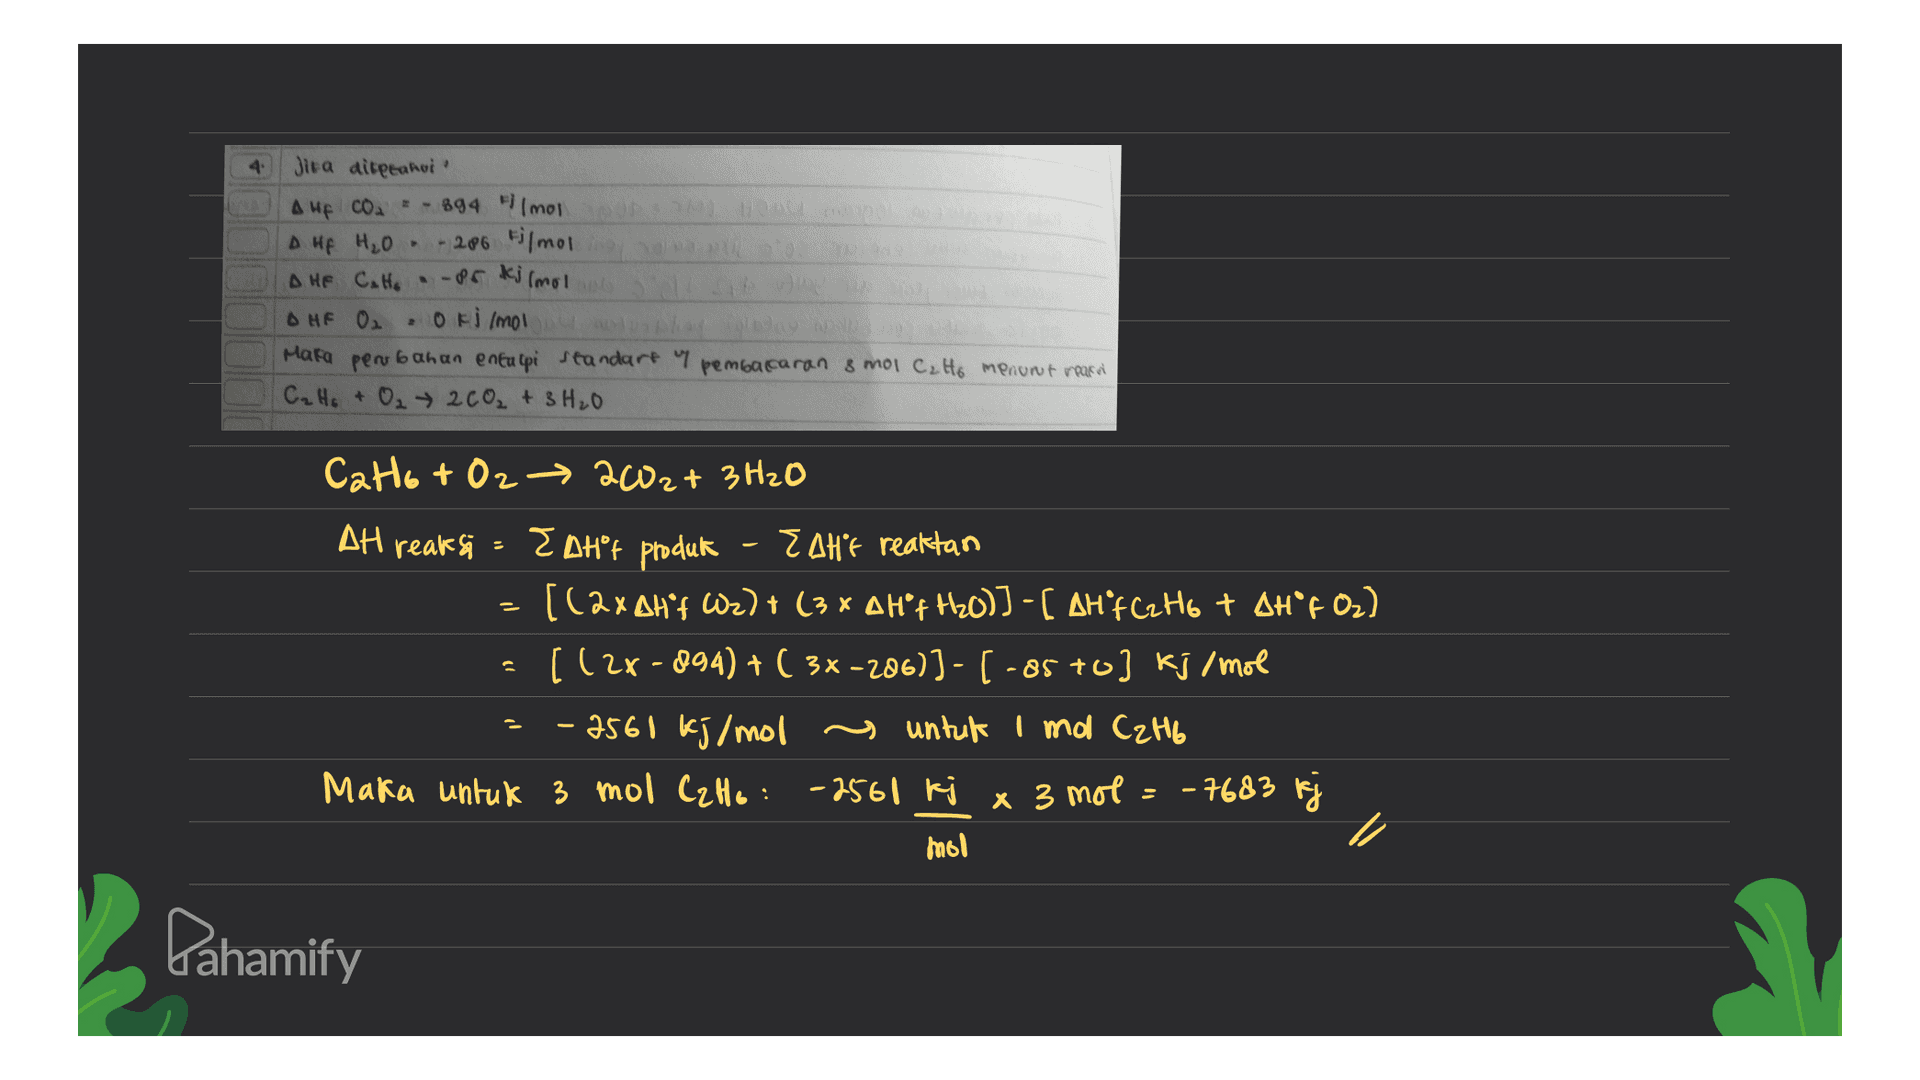 4. Jika diketahui :
ΔHf CO₂ = -894 kj/mol
ΔHf H₂O = -286 kj/mol
ΔHf C₂H₆ = -85 kj/mol
ΔHf O₂ = 0 kj/mol
Maka perubahan entalpi standart y pembakaran 3 mol C₂H₆ menurut reaksi
C₂H₆ + O₂ → 2CO₂ + 3H₂O
C₂H₆ + O₂ → 2CO₂ + 3H₂O
ΔH reaksi = Σ ΔH°f produk - Σ ΔH°f reaktan
= [(2x ΔH°f CO₂) + (3 x ΔH°f H₂O)] - [ ΔH°f C₂H₆ + ΔH°f O₂)
= [(2x - 894) + ( 3x -286)] - [ -85 + 0] kj/mol
= - 2561 kj/mol ⤳ untuk 1 mol C₂H₆
Maka untuk 3 mol C₂H₆ : -2561 kj x 3 mol = -7683 kj
mol
Pahamify